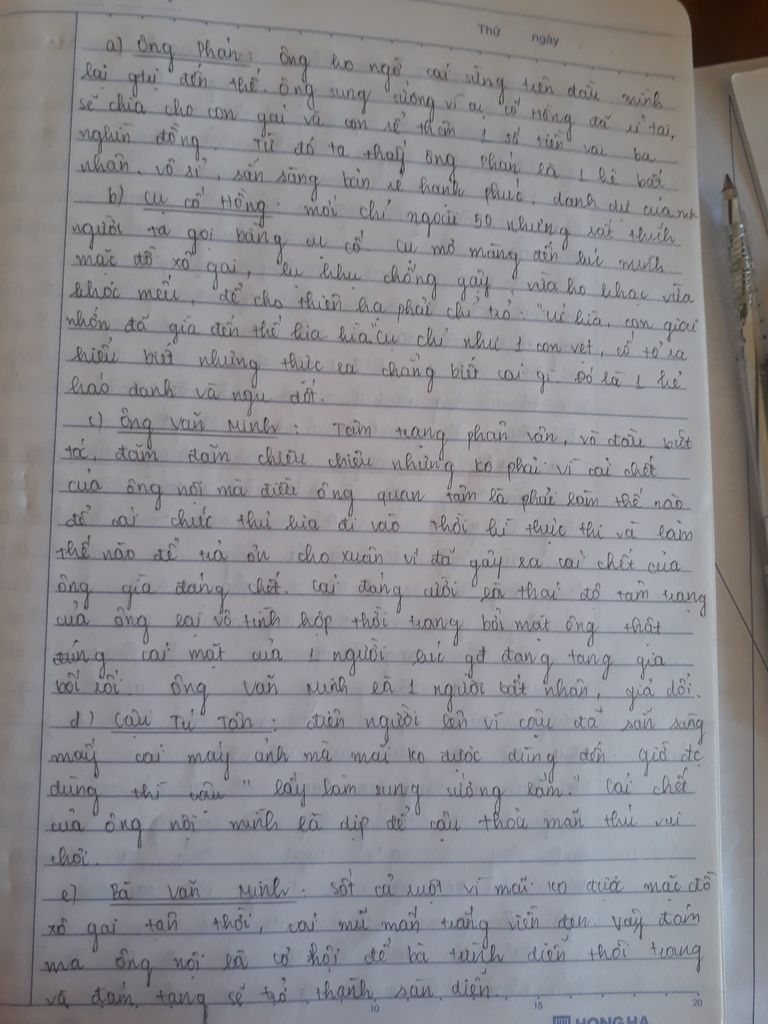 Thứ ngày
a) Ông Phán: Ông ko ngờ cái sừng trên đầu mình
lại giá trị đến thế. Ông sung sướng vì cụ cố Hồng đã rỉ tai,
sẽ chia cho con gái và con rể thêm 1 số tiền vài ba
nghìn đồng. Từ đó ta thấy ông Phán là 1 kẻ bất
nhân, vô sỉ, sẵn sàng bán rẻ hạnh phúc, danh dự của mk
b) Cụ cố Hồng: mới chỉ ngoài 50 nhưng rất thích
người ta gọi bằng cụ cố. Cụ mơ màng đến lúc mình
mặc đồ xô gai, lụ khụ chống gậy, vừa ho khạc vừa
khóc mếu, để cho thiên hạ phải chỉ trỏ: "Úi kìa, con giai
nhớn đã già đến thế kia kìa" Cụ chỉ như 1 con vẹt, cố tỏ ra
hiểu biết nhưng thực ra chẳng biết cái gì. Đó là 1 kẻ
háo danh và ngu dốt.
c) Ông Văn Minh: Tâm trạng phân vân, vò đầu bứt
tóc, đăm đăm chiêu chiêu nhưng ko phải vì cái chết
của ông nội mà điều ông quan tâm là phải làm thế nào
để cái chúc thư kia đi vào thời kì thực thi và làm
thế nào để trả ơn cho Xuân vì đã gây ra cái chết của
ông già đáng chết. Cái đáng cười là thái độ tâm trạng
của ông lại vô tình hợp thời trang bởi mặt ông thật
đúng cái mặt của 1 người lúc gđ đang tang gia
bối rối. Ông Văn Minh là 1 người bất nhân, giả dối.
d) Cậu Tú Tân: điên người lên vì cậu đã sẵn sàng
mấy cái máy ảnh mà mãi ko được dùng đến. giờ đc
dùng thì cậu "lấy làm sung sướng lắm." Cái chết
của ông nội mình là dịp để cậu thỏa mãn thú vui
chơi.
e) Bà Văn Minh: sốt cả ruột vì mãi ko được mặc đồ
xô gai tân thời, cái mũ mấn trắng viền đen. Vậy đám
ma ông nội là cơ hội để bà trình diễn thời trang
và đám tang sẽ trở thành sàn diễn.
10 15 20
HONG HA